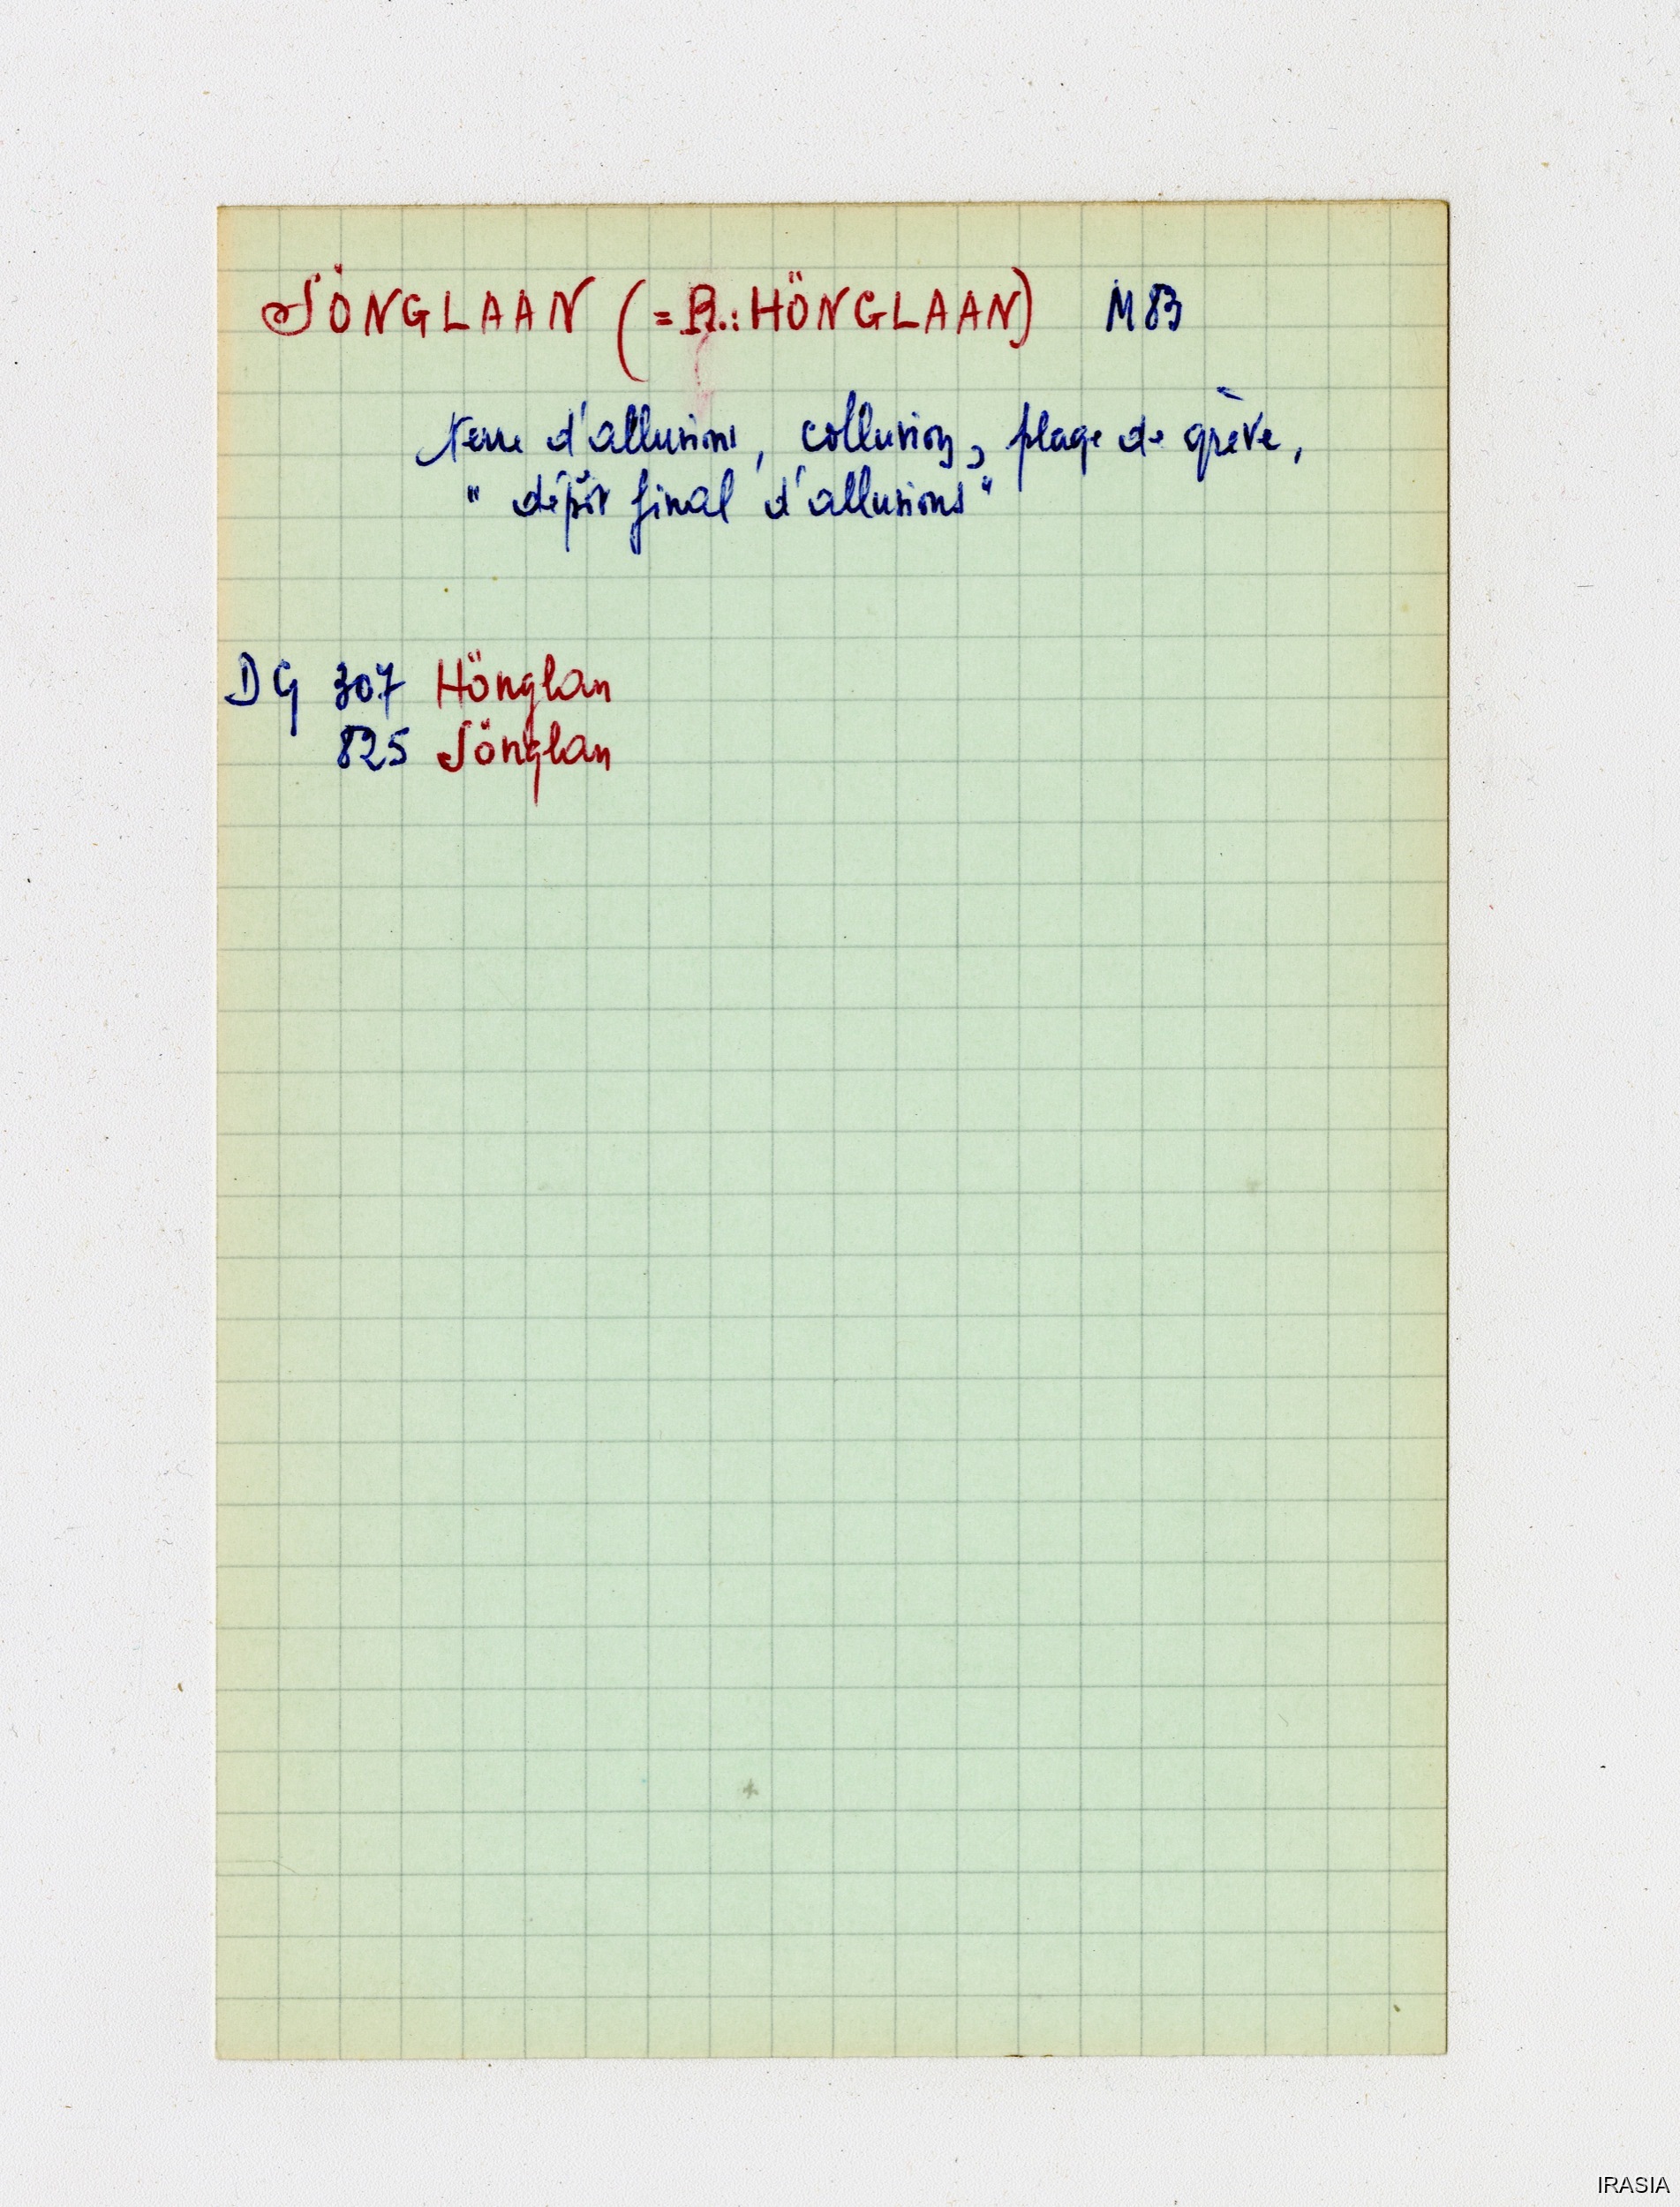 SÖNGLAAN (= R.: HÖNGLAAN) M 83
terre d'allusions, collusion, plage de grève,
"dépôt final d'allusions"
DG 307 Hönglan
825 Sönglan
IRASIA